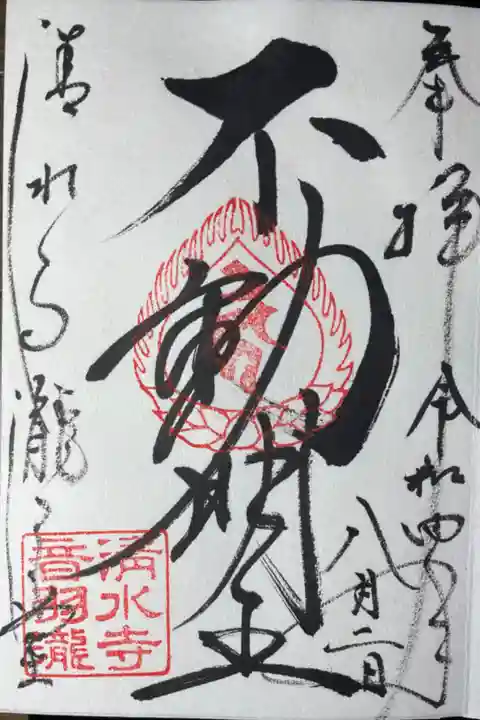 奉拝 令和四年
八月二日
不動明王
清水寺 瀧之堂
清水寺
音羽瀧